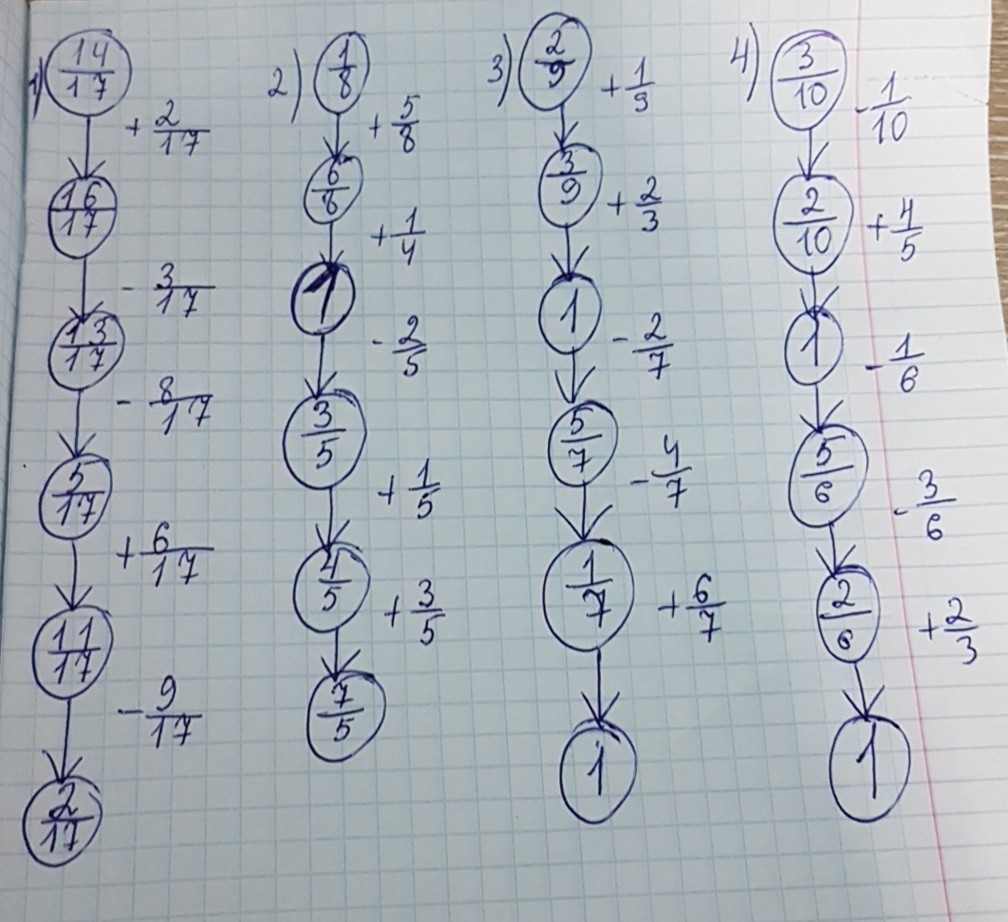 1) 14/17
+ 2/17
16/17
- 3/17
13/17
- 8/17
5/17
+ 6/17
11/17
- 9/17
2/17
2) 1/8
+ 5/8
6/8
+ 1/4
1
- 2/5
3/5
+ 1/5
4/5
+ 3/5
7/5
3) 2/9
+ 1/9
3/9
+ 2/3
1
- 2/7
5/7
- 4/7
1/7
+ 6/7
1
4) 3/10
- 1/10
2/10
+ 4/5
1
- 1/6
5/6
- 3/6
2/6
+ 2/3
1